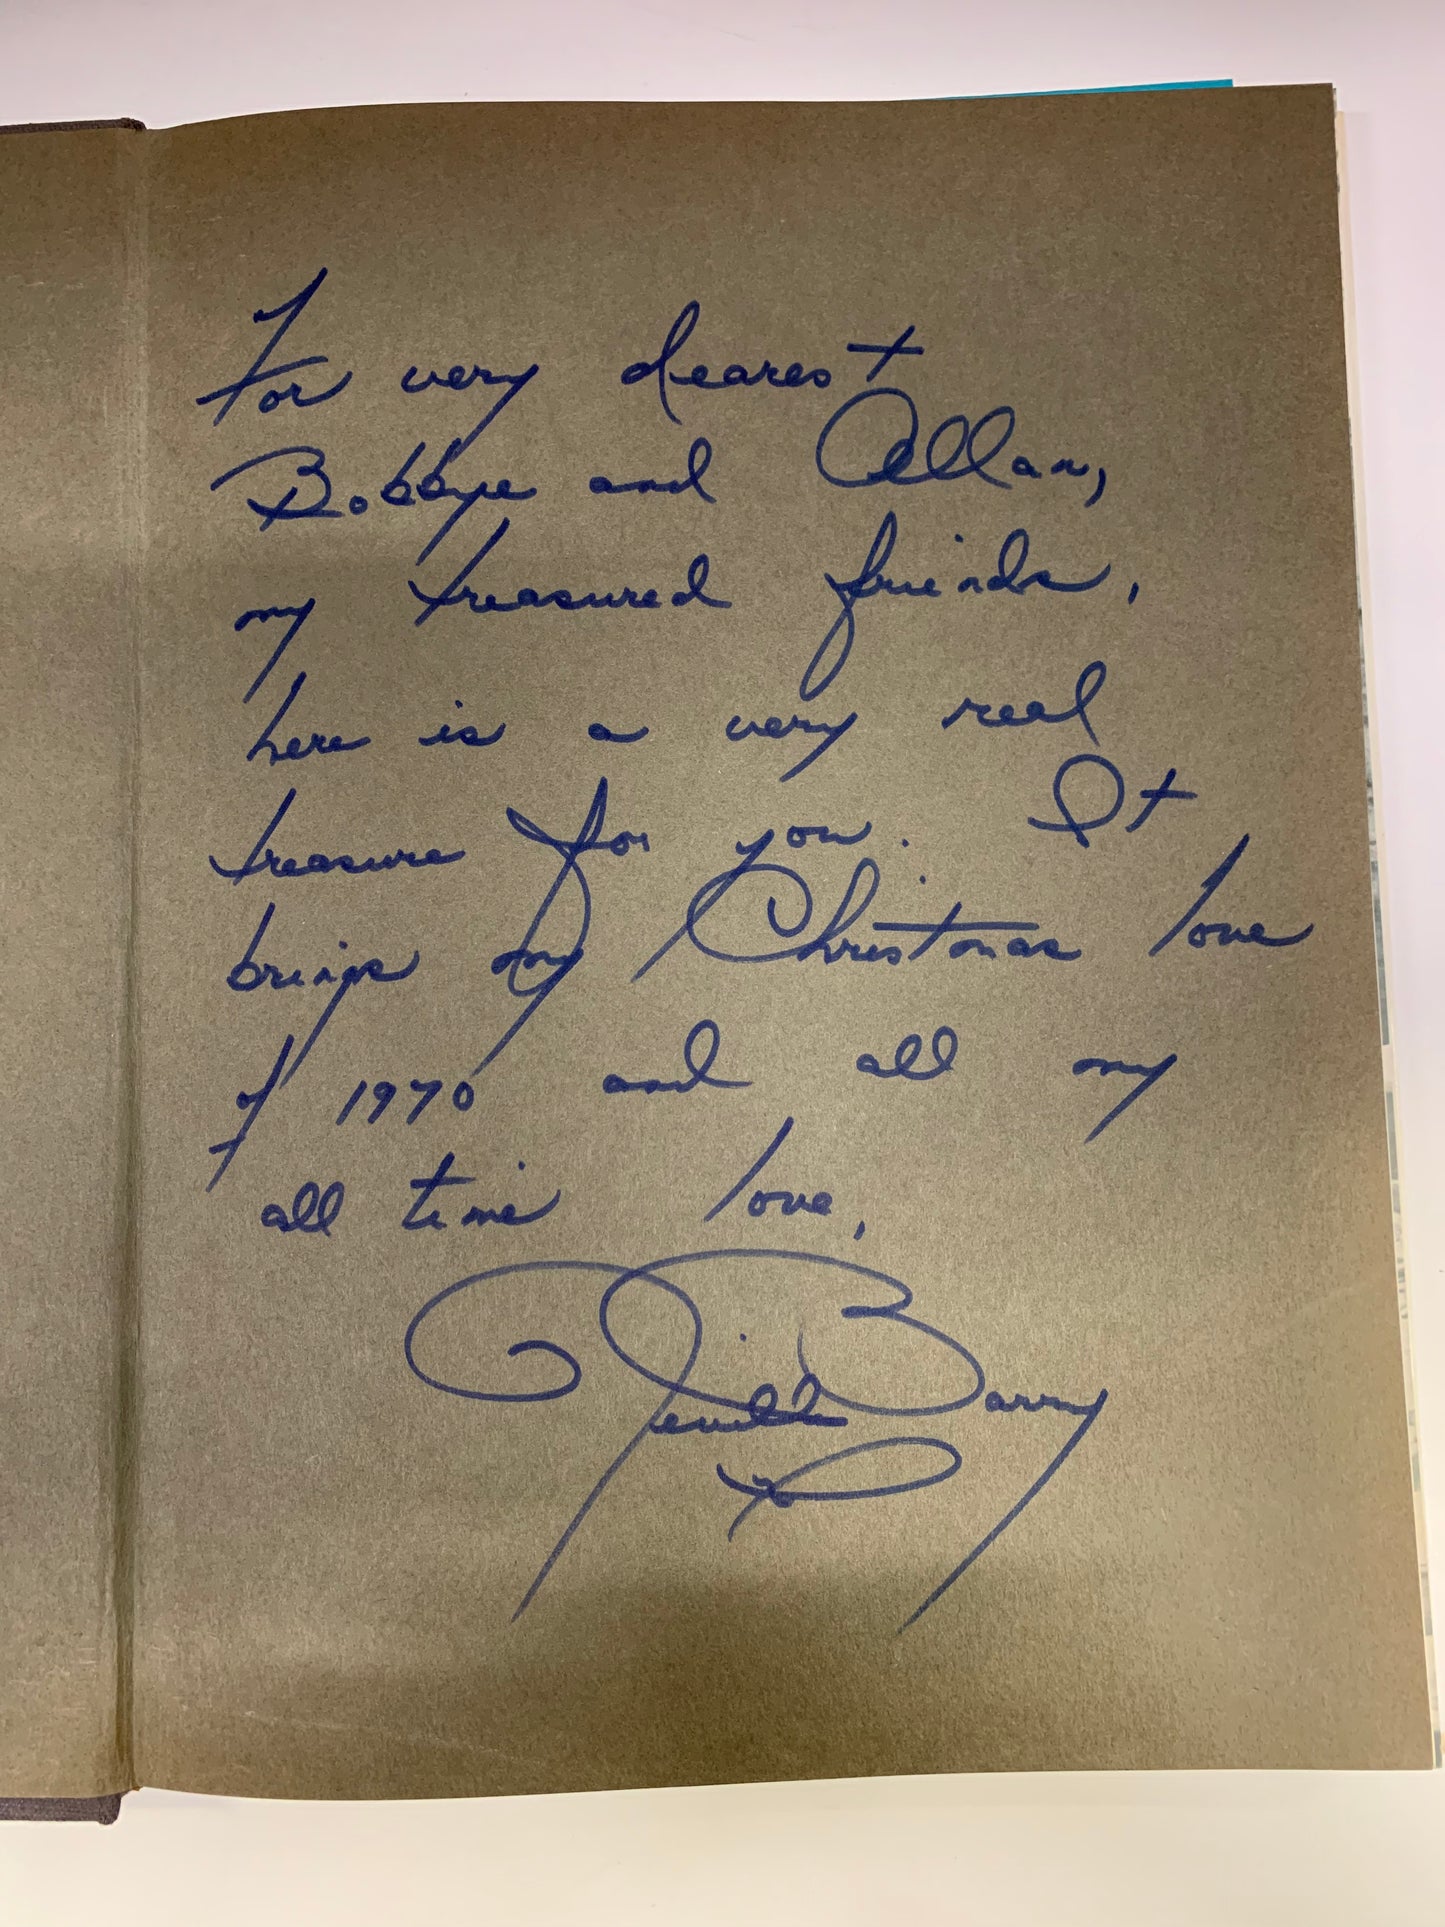 For very dearest
Bobbye and Allan,
my treasured friends,
here is a very real
treasure for you. It
brings my Christmas love
of 1970 and all my
all time love,
Neville Barry